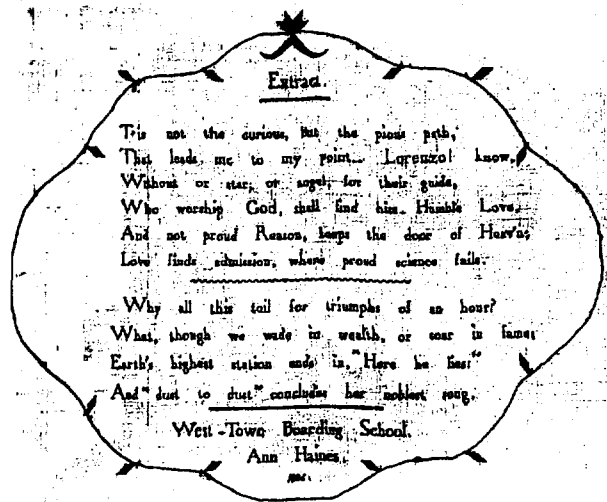 Extract.
T'is not the curious, but the pious path,
That leads me to my point. Lorenzo! know,
Without or star, or angel, for their guide,
Who worship God, shall find him. Humble Love,
And not proud Reason, keeps the door of Heav'n;
Love finds admission, where proud science fails.
Why all this toil for triumphs of an hour?
What, though we wade in wealth, or soar in fame;
Earth's highest station ends in, "Here he lies:"
And "dust to dust" concludes her noblest song.
West-Town Boarding School.
Ann Haines.